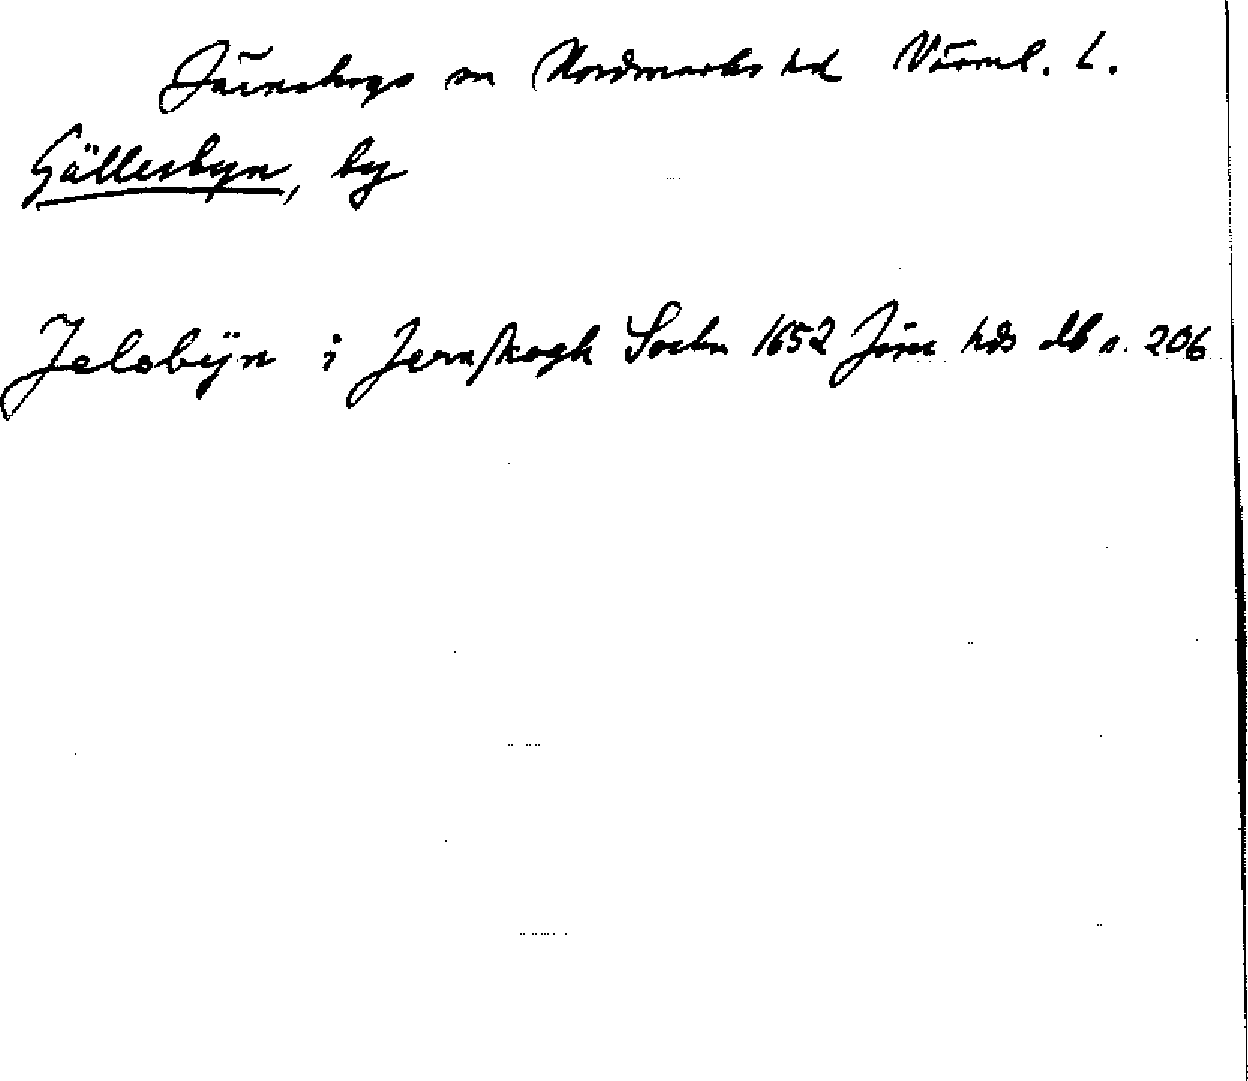 Järnskogs sn Nordmarks hd Värml. l.
Gällesbyn, by
Jelsbÿn i Jernskogh Sochn 1652 Jösse hds db s. 206